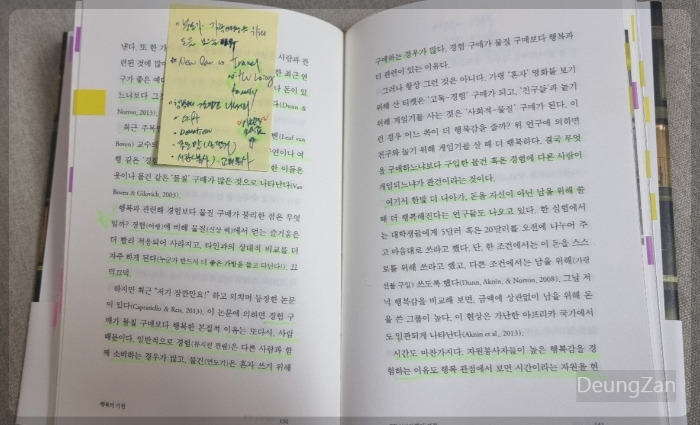 냈다. 또 한 가
사람과 관
련된 것에 많
한 최근 연
구가 좋은 예
다 돈이 있
느냐보다 그
(Dunn &
Norton, 2013).
최근 주목
벤(Leaf van
Boven) 교수
연이나 여
행 같은 '경험
한 이들은
옷이나 물건 같은 '물질' 구매가 많은 것으로 나타난다(Van
Boven & Gilovich, 2003).
행복과 관련해 경험보다 물질 구매가 불리한 점은 무엇
일까? 경험(여행)에 비해 물질(신상 백)에서 얻는 즐거움은
더 빨리 적응되어 사라지고, 타인과의 상대적 비교를 더
자주 하게 된다(누군가 반드시 더 좋은 가방을 들고 다닌다!). 끄
덕끄덕.
하지만 최근 "저기 잠깐만요!" 하고 외치며 등장한 논문
이 있다(Caprariello & Reis, 2013). 이 논문에 의하면 경험 구
매가 물질 구매보다 행복한 본질적 이유는 또다시, 사람
때문이다. 일반적으로 경험(뮤지컬 관람)은 다른 사람과 함
께 소비하는 경우가 많고, 물건(면도기)은 혼자 쓰기 위해
행복의 기원
New Car is Travel
with Long
family
gift
Donation
구매하는 경우가 많다. 경험 구매가 물질 구매보다 행복과
더 관련이 있는 이유다.
그러나 항상 그런 것은 아니다. 가령 '혼자' 영화를 보기
위해 산 티켓은 '고독-경험' 구매가 되고, '친구들'과 놀기
위해 게임기를 사는 것은 '사회적-물질' 구매가 된다. 이
런 경우 어느 쪽이 더 행복감을 줄까? 위 연구에 의하면
친구와 놀기 위해 게임기를 살 때 더 행복하다. 결국 무엇
을 구매하느냐보다 구입한 물건 혹은 경험에 다른 사람이
개입되느냐가 관건이라는 것이다.
여기서 한발 더 나아가, 돈을 자신이 아닌 남을 위해 쓸
때 더 행복해진다는 연구들도 나오고 있다. 한 실험에서
는 대학생들에게 5달러 혹은 20달러를 오전에 나누어 주
고 마음대로 쓰라고 했다. 단, 한 조건에서는 이 돈을 스스
로를 위해 쓰라고 했고, 다른 조건에서는 남을 위해(가령
선물 구입) 쓰도록 했다(Dunn, Aknin, & Norton, 2008). 그날 저
녁 행복감을 비교해 보면, 금액에 상관없이 남을 위해 돈
을 쓴 그룹이 높다. 이 현상은 가난한 아프리카 국가에서
도 일관되게 나타난다(Aknin et al., 2013).
시간도 마찬가지다. 자원봉사자들이 높은 행복감을 경
험하는 이유도 행복 관점에서 보면 시간이라는 자원을 현
DeungZan